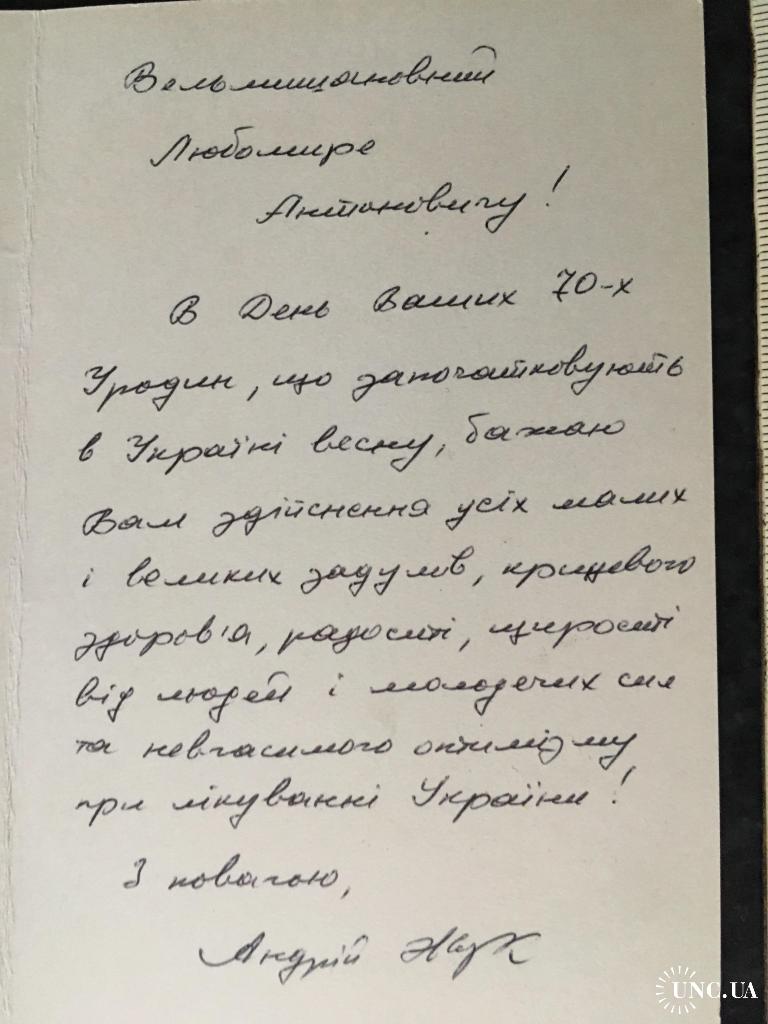 Вельмишановний
Любомире
Антоновичу!
В День Ваших 70-х
Уродин, що започатковують
в Україні весну, бажаю
Вам здійснення усіх малих
і великих задумів, крицевого
здоров'я, радості, щирості
від людей і молодечих сил
та невгасимого оптимізму
при лікуванні України!
З повагою,
Андрій Жук
UNC.UA